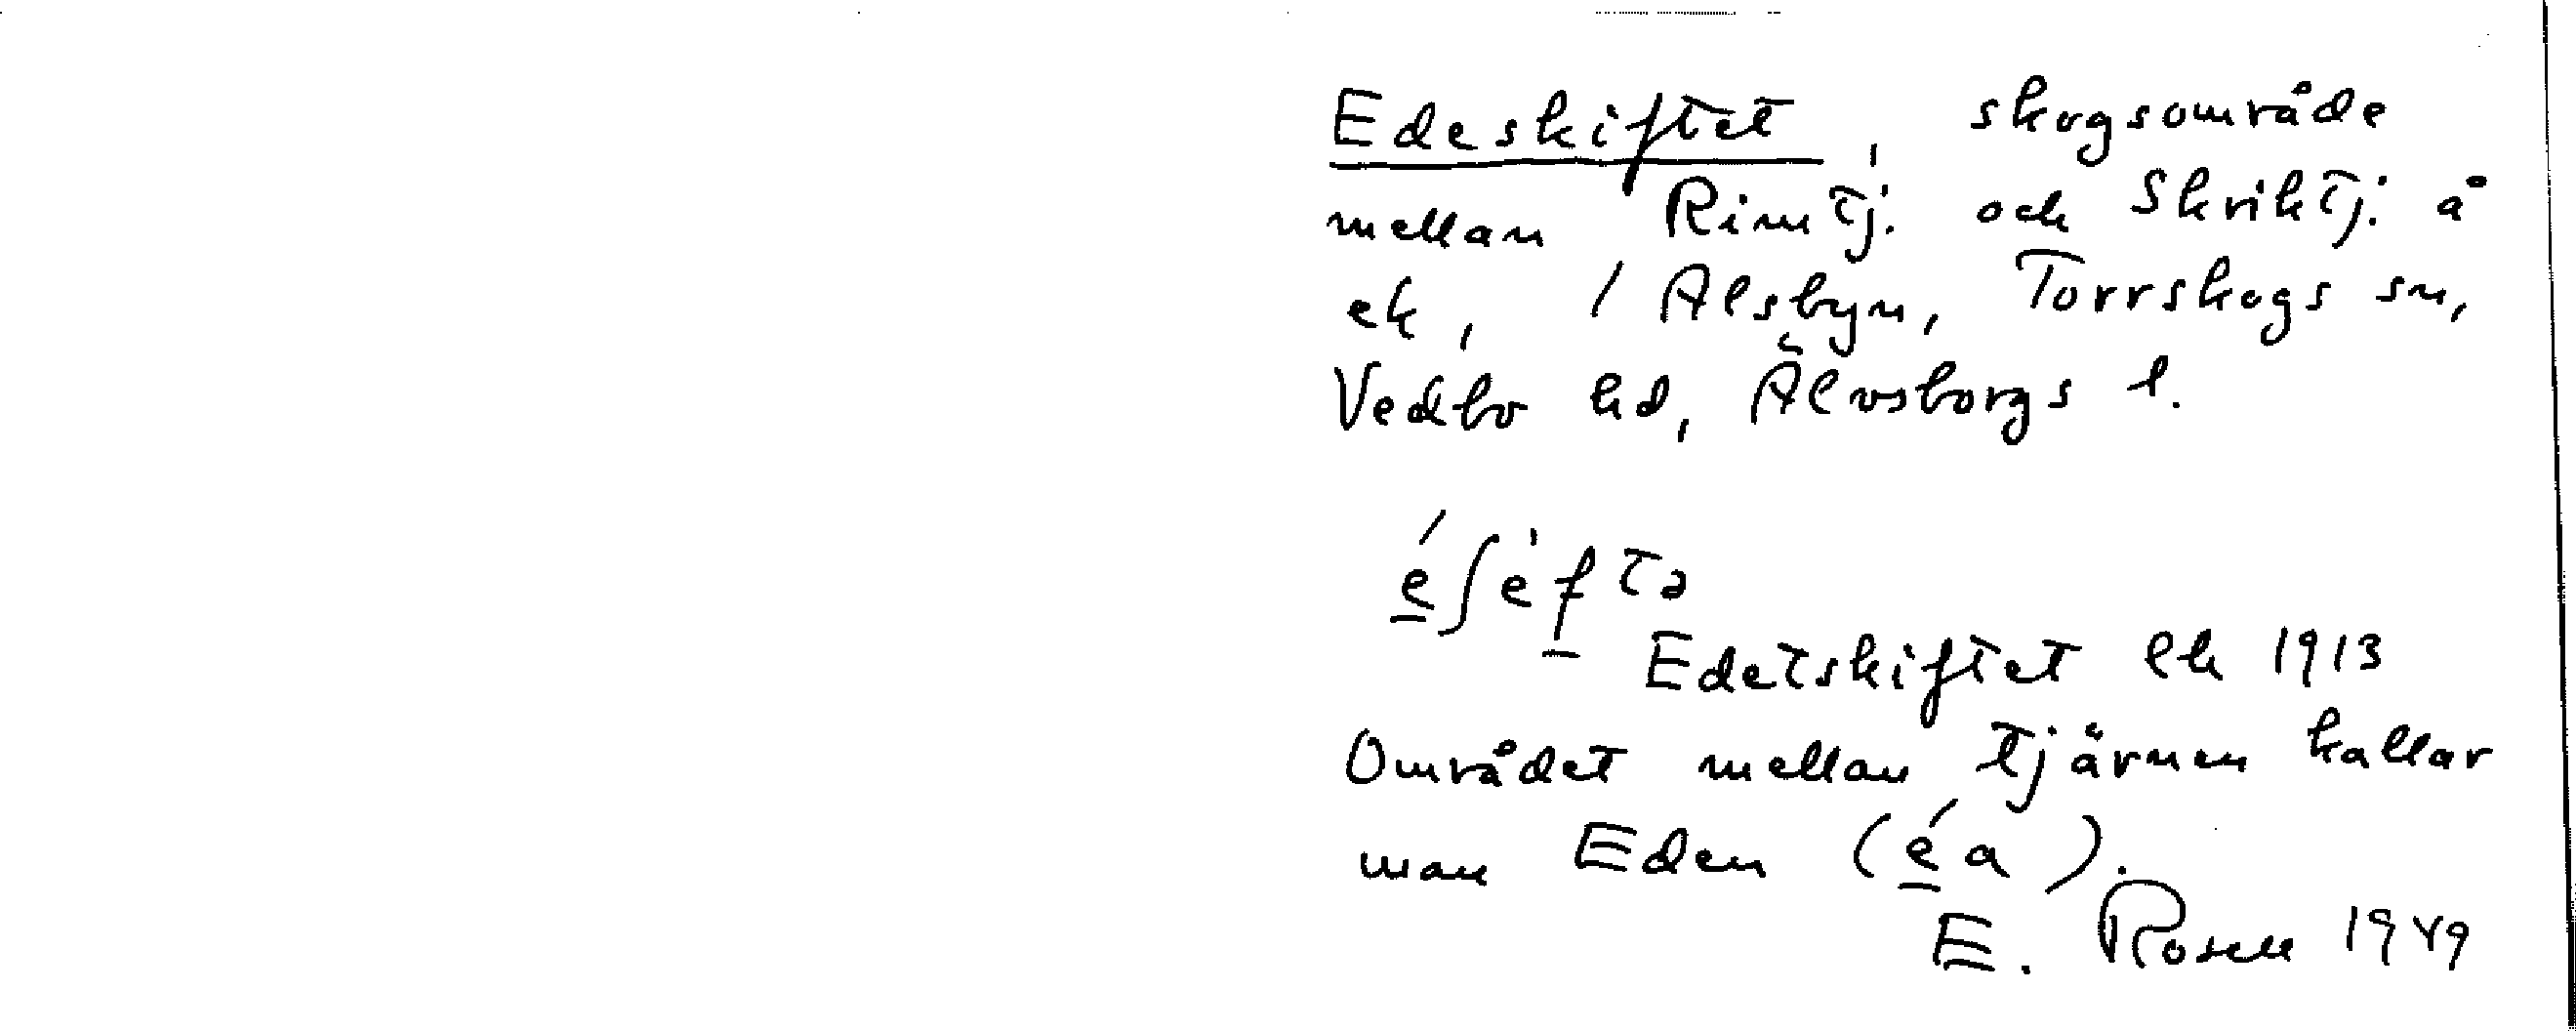 Edeskiftet, skogsområde
mellan Rimtj. och Skriktj. å
ek, / Alsbyn, Torrskogs sn,
Vedbo hd, Älvsborgs l.
é̲ʃèf̲tə
Edetskiftet lk 1913
Området mellan tjärnen kallar
man Eden (é̲a).
E. Rosell 1949